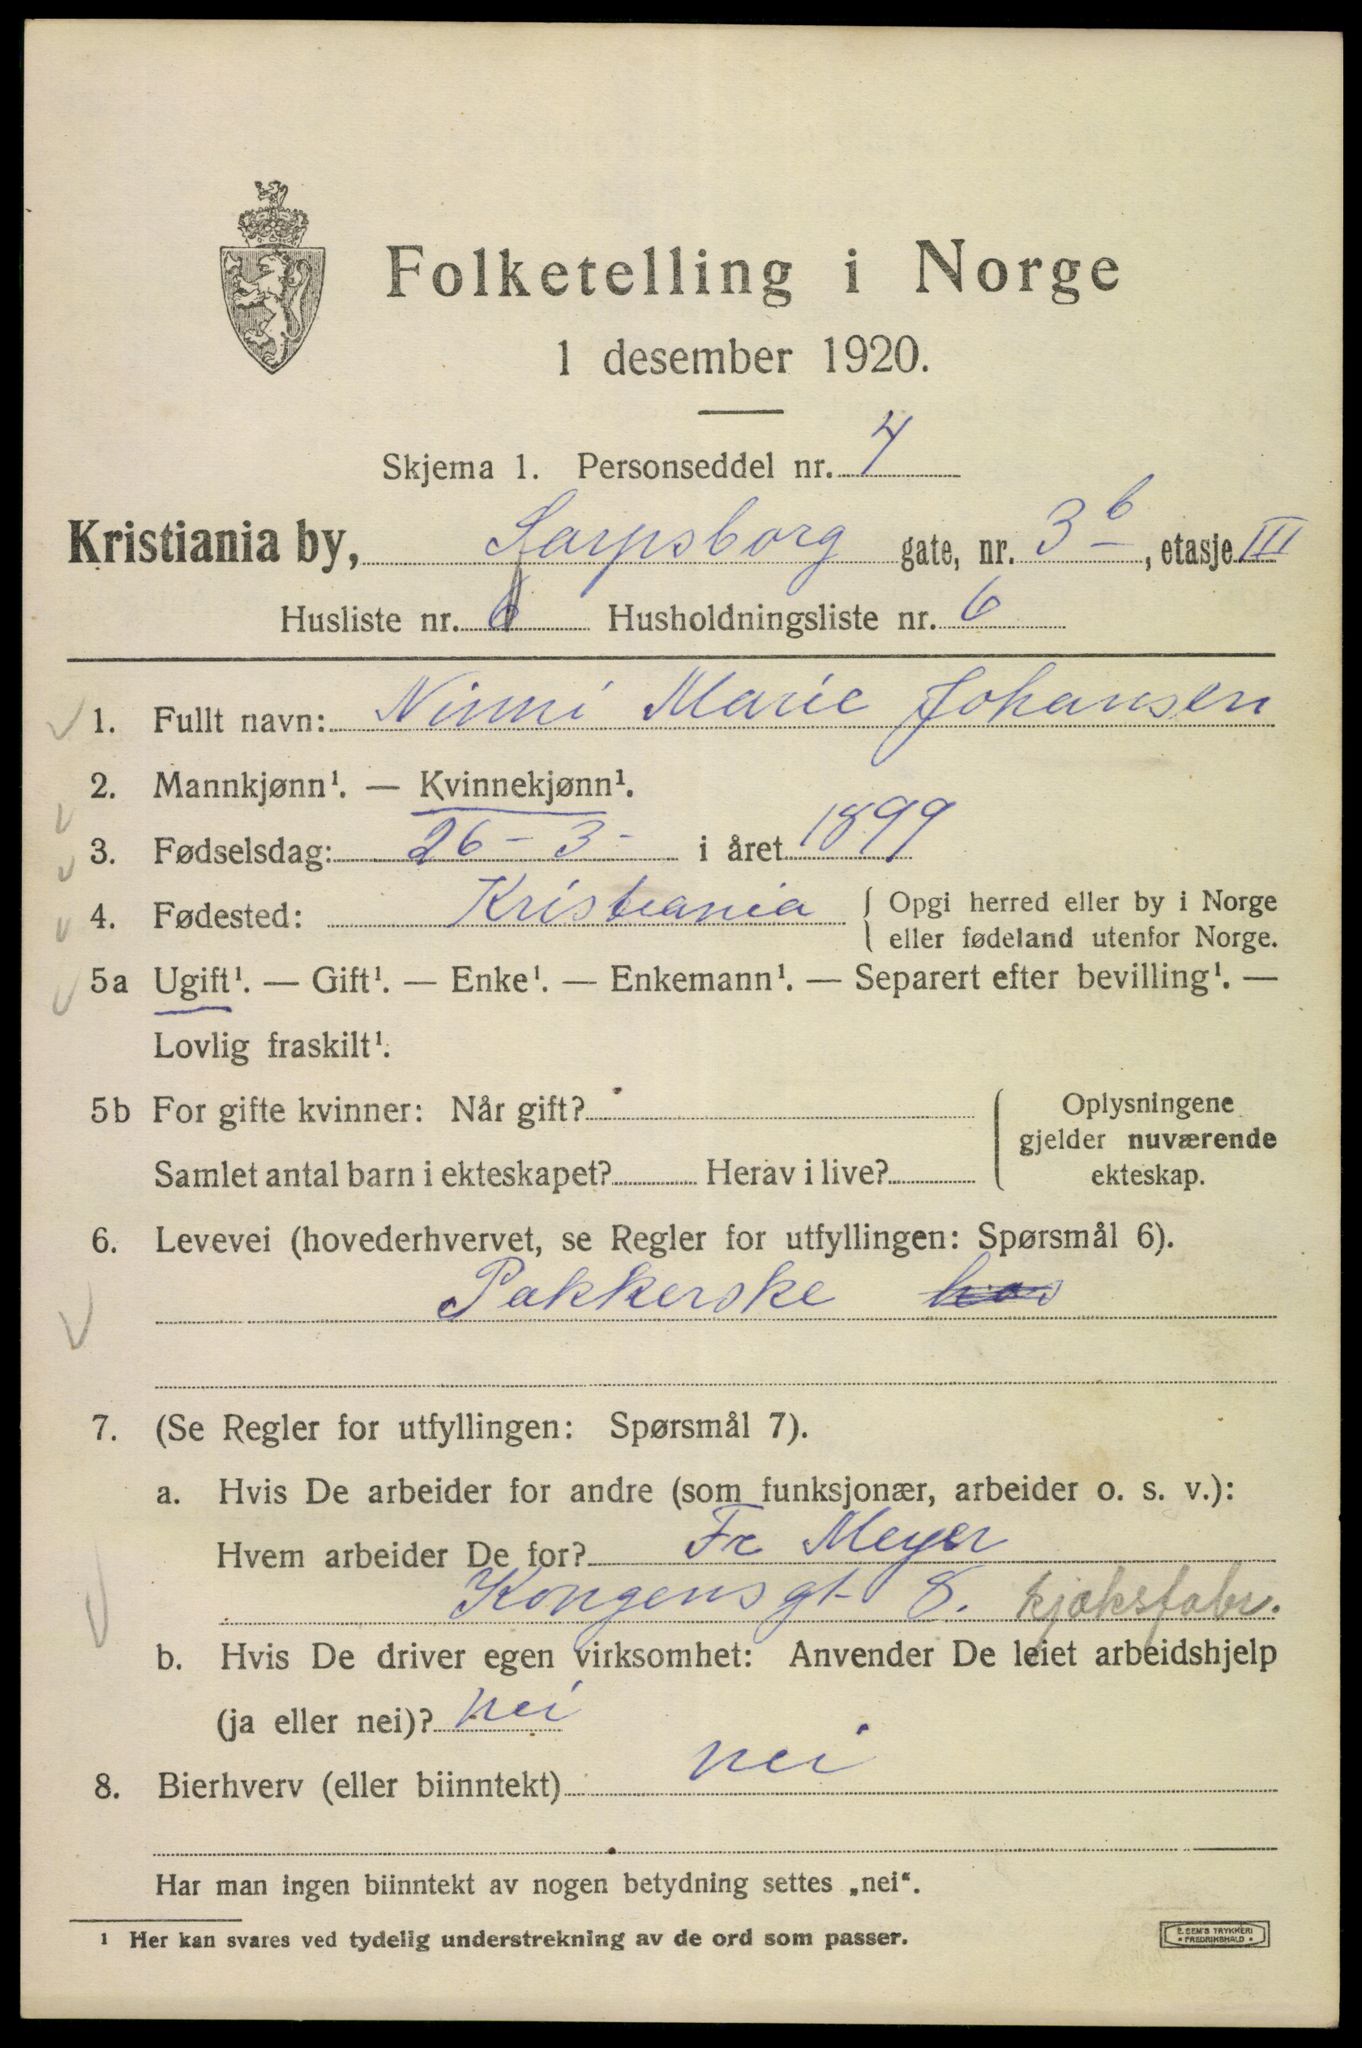 Folketelling i Norge
1 desember 1920.
Skjema 1. Personseddel nr. 4
Kristiania by, Sarpsborg gate, nr. 3b, etasje III
Husliste nr. 6 Husholdningsliste nr. 6
1. Fullt navn: Ninni Marie Johansen
2. Mannkjønn¹. — Kvinnekjønn¹.
3. Fødselsdag: 26 - 3 - i året 1899
4. Fødested: Kristiania { Opgi herred eller by i Norge
eller fødeland utenfor Norge.
5a Ugift¹. — Gift¹. — Enke¹. — Enkemann¹. — Separert efter bevilling¹. —
Lovlig fraskilt¹.
5b For gifte kvinner: Når gift?
Samlet antal barn i ekteskapet? Herav i live?
Oplysningene
gjelder nuværende
ekteskap.
6. Levevei (hovederhvervet, se Regler for utfyllingen: Spørsmål 6).
Pakkerske hos
7. (Se Regler for utfyllingen: Spørsmål 7).
a. Hvis De arbeider for andre (som funksjonær, arbeider o. s. v.):
Hvem arbeider De for? Fr Meyer
Kongensgt 8. kjæksfabr.
b. Hvis De driver egen virksomhet: Anvender De leiet arbeidshjelp
(ja eller nei)? nei
8. Bierhverv (eller biinntekt) nei
Har man ingen biinntekt av nogen betydning settes „nei“.
¹ Her kan svares ved tydelig understrekning av de ord som passer.
E. SEM'S TRYKKERI
• FREDRIKSHALD •